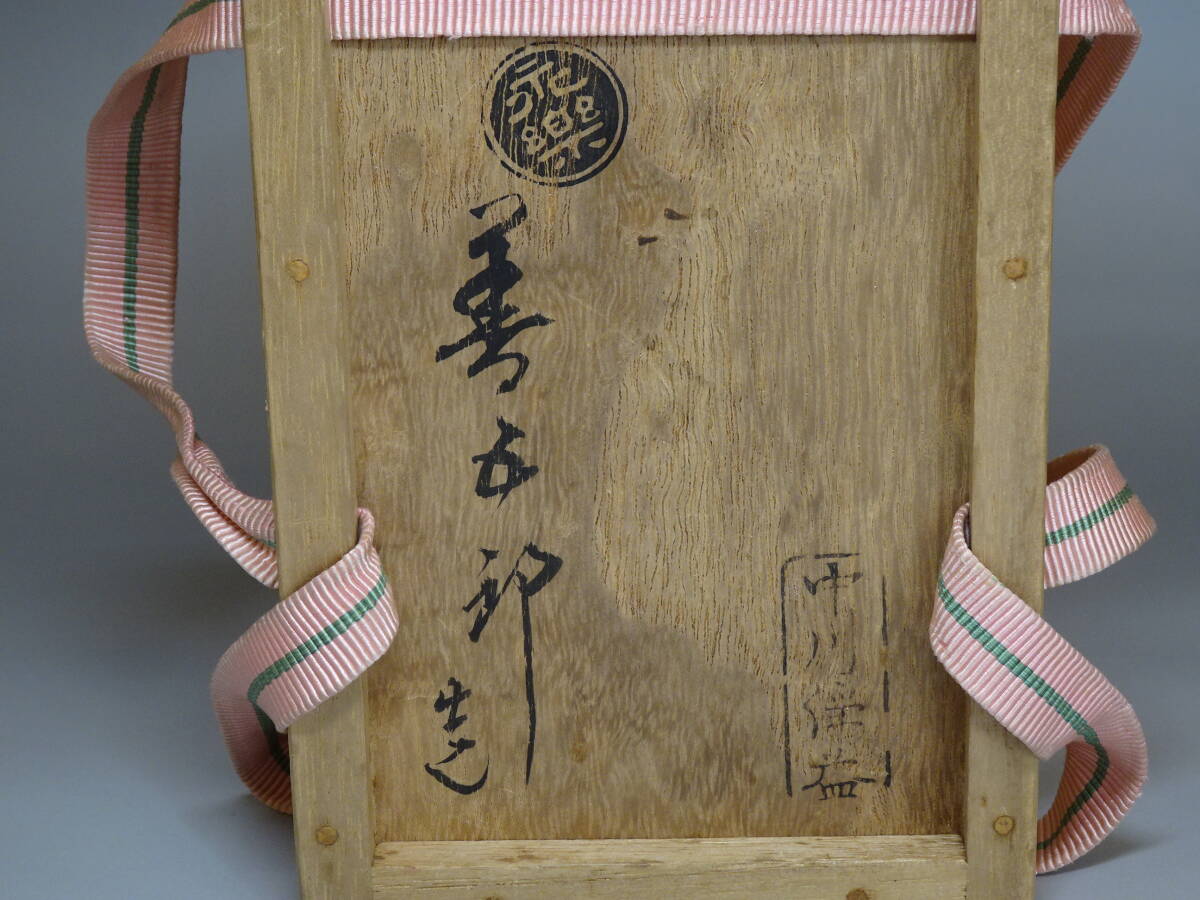 永樂
善五郎造
中川浄益